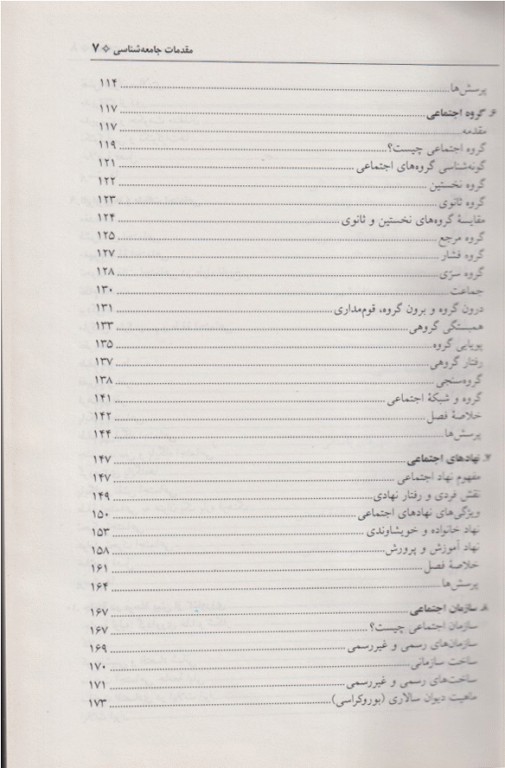 مقدمات جامعه‌شناسی ❖ ۷
پرسش‌ها ۱۱۴
۶. گروه اجتماعی ۱۱۷
مقدمه ۱۱۷
گروه اجتماعی چیست؟ ۱۱۹
گونه‌شناسی گروه‌های اجتماعی ۱۲۱
گروه نخستین ۱۲۲
گروه ثانوی ۱۲۳
مقایسهٔ گروه‌های نخستین و ثانوی ۱۲۴
گروه مرجع ۱۲۵
گروه فشار ۱۲۷
گروه سرّی ۱۲۸
جماعت ۱۳۰
درون گروه و برون گروه، قوم‌مداری ۱۳۱
همبستگی گروهی ۱۳۳
پویایی گروه ۱۳۵
رفتار گروهی ۱۳۷
گروه‌سنجی ۱۳۸
گروه و شبکهٔ اجتماعی ۱۴۱
خلاصهٔ فصل ۱۴۲
پرسش‌ها ۱۴۴
۷. نهادهای اجتماعی ۱۴۷
مفهوم نهاد اجتماعی ۱۴۷
نقش فردی و رفتار نهادی ۱۴۹
ویژگی‌های نهادهای اجتماعی ۱۵۰
نهاد خانواده و خویشاوندی ۱۵۳
نهاد آموزش و پرورش ۱۵۸
خلاصهٔ فصل ۱۶۱
پرسش‌ها ۱۶۴
۸. سازمان اجتماعی ۱۶۷
سازمان اجتماعی چیست؟ ۱۶۷
سازمان‌های رسمی و غیررسمی ۱۶۹
ساخت سازمانی ۱۷۰
ساخت‌های رسمی و غیررسمی ۱۷۱
ماهیت دیوان سالاری (بوروکراسی) ۱۷۳